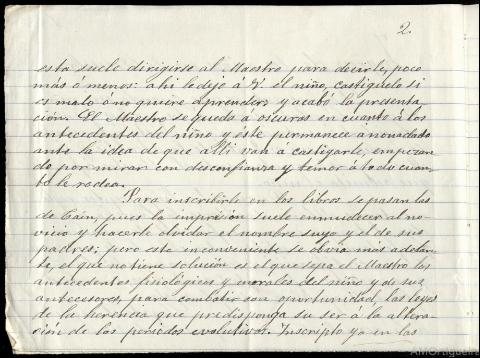 2.
esta suele dirigirse al Maestro para decirle, poco
más ó menos: ahi le dejo á V. el niño, castiguelo si
es malo ó no quiere aprender; y acabó la presenta-
ción. El Maestro se queda á oscuras en cuanto á los
antecedentes del niño y éste permanece anonadado
ante la idea de que allí van á castigarle, empezan-
do por mirar con desconfianza y temor á todo cuan-
to le rodea.
Para inscribirle en los libros se pasan las
de Cain, pues la impresión suele enmudecer al no-
vicio y hacerle olvidar el nombre suyo y el de sus
padres; pero este inconveniente se obvia más adelan-
te, el que no tiene solución es el que sepa el Maestro los
antecedentes fisiológicos y morales del niño y de sus
antecesores, para combatir con oportunidad, las leyes
de la herencia que predisponga su ser á la altera-
ción de los periodos evolutivos. Inscripto ya en las
AMOrtigueira